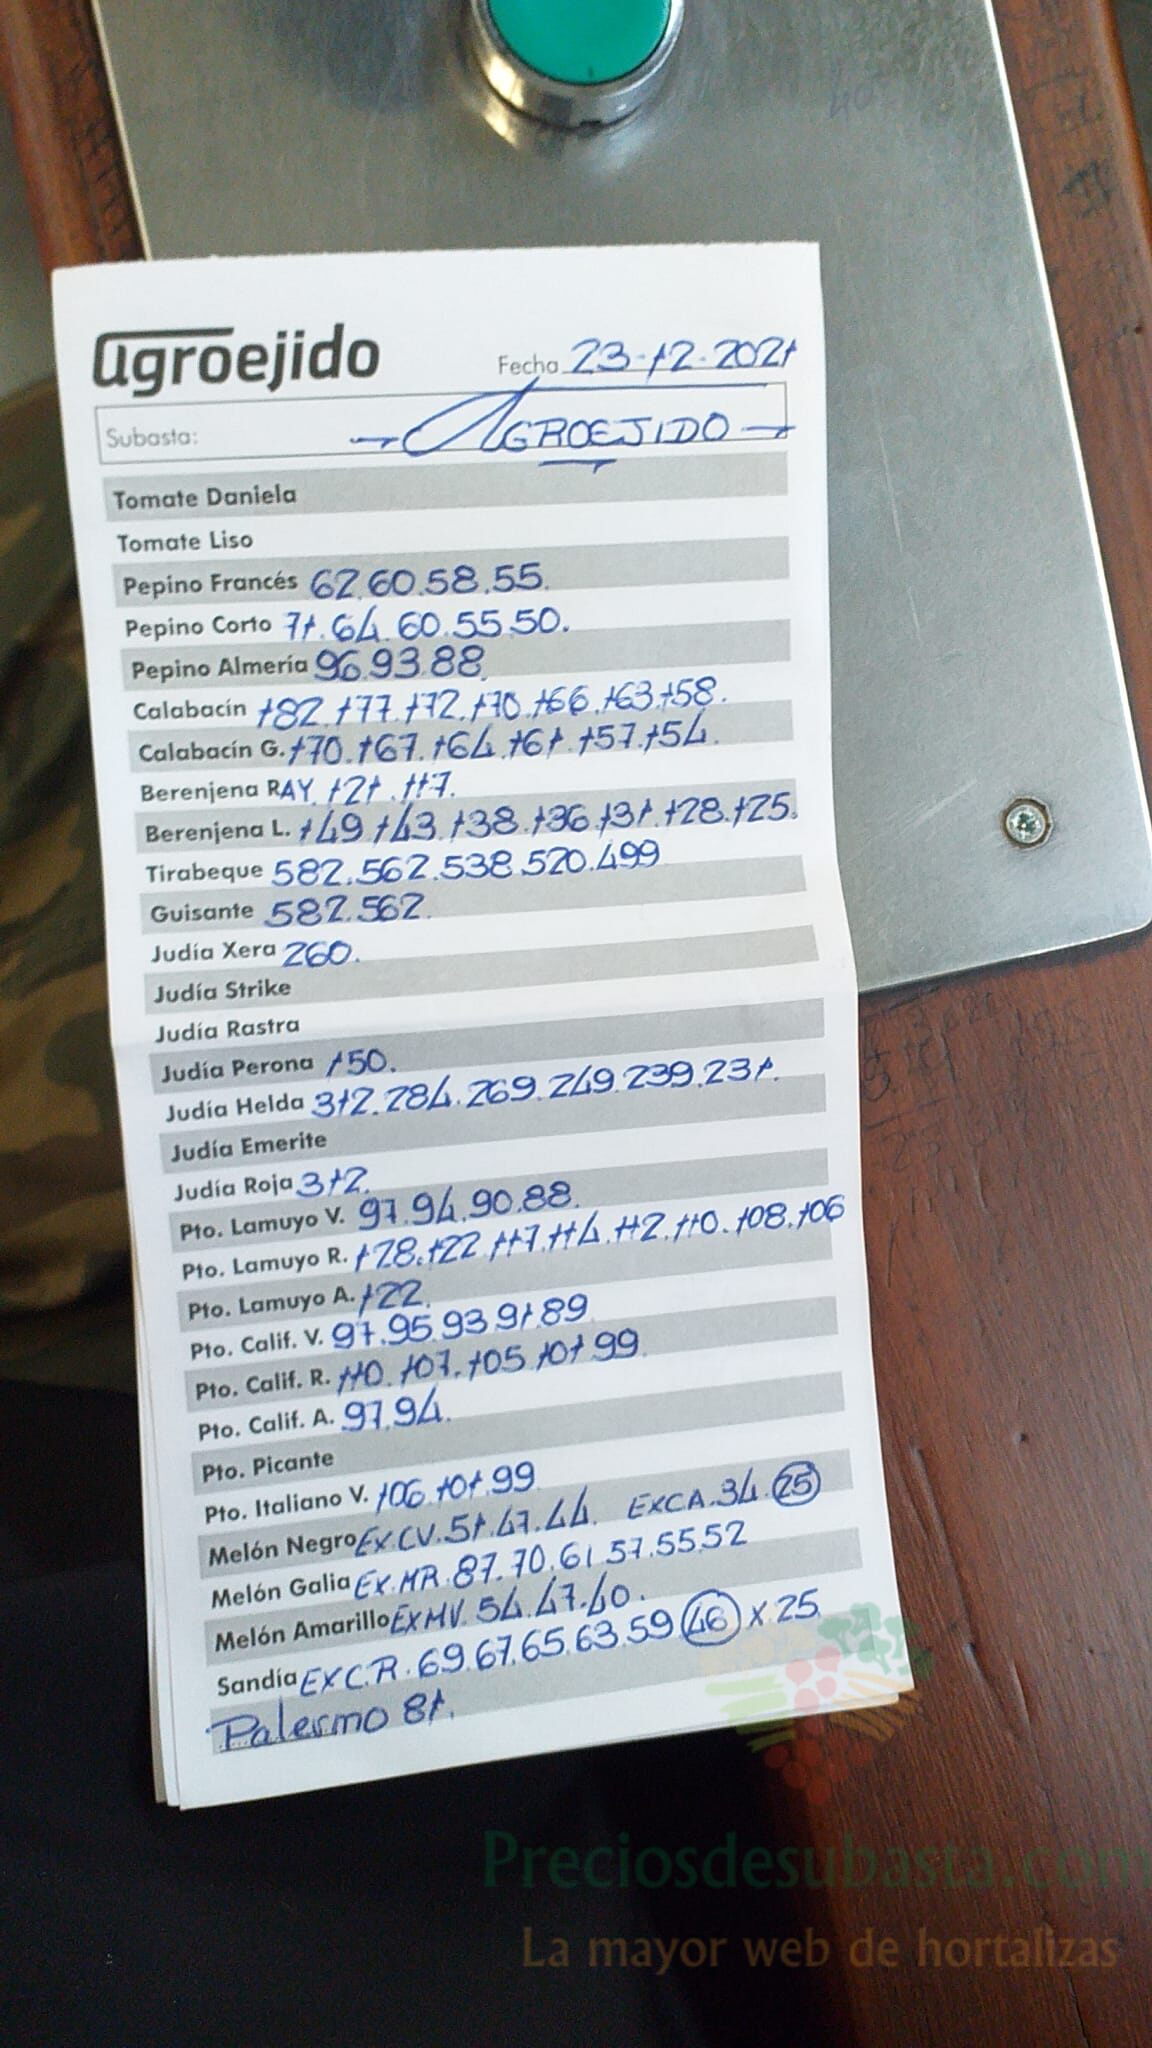 agroejido
Fecha 23-12-2021
Subasta: AGROEJIDO
Tomate Daniela
Tomate Liso
Pepino Francés 62.60.58.55.
Pepino Corto 71.64.60.55.50.
Pepino Almería 96.93.88.
Calabacín 182.177.172.170.166.163.158.
Calabacín G. 170.167.164.161.157.154.
Berenjena RAY. 121.117.
Berenjena L. 149.143.138.136.131.128.125.
Tirabeque 582.562.538.520.499
Guisante 582.562.
Judía Xera 260.
Judía Strike
Judía Rastra
Judía Perona 150.
Judía Helda 312.284.269.249.239.231.
Judía Emerite
Judía Roja 312.
Pto. Lamuyo V. 97.94.90.88.
Pto. Lamuyo R. 128.122.117.114.112.110.108.106
Pto. Lamuyo A. 122.
Pto. Calif. V. 97.95.93.91.89
Pto. Calif. R. 110.107.105.101.99.
Pto. Calif. A. 97.94.
Pto. Picante
Pto. Italiano V. 106.101.99
Melón Negro EX.CV.51.47.44. EXCA.34.25
Melón Galia EX.MR.87.70.61.57.55.52
Melón Amarillo EXMV.54.47.40.
Sandía EXC.R.69.67.65.63.59 46 x 25.
Palermo 81.
Preciosdesubasta.com
La mayor web de hortalizas